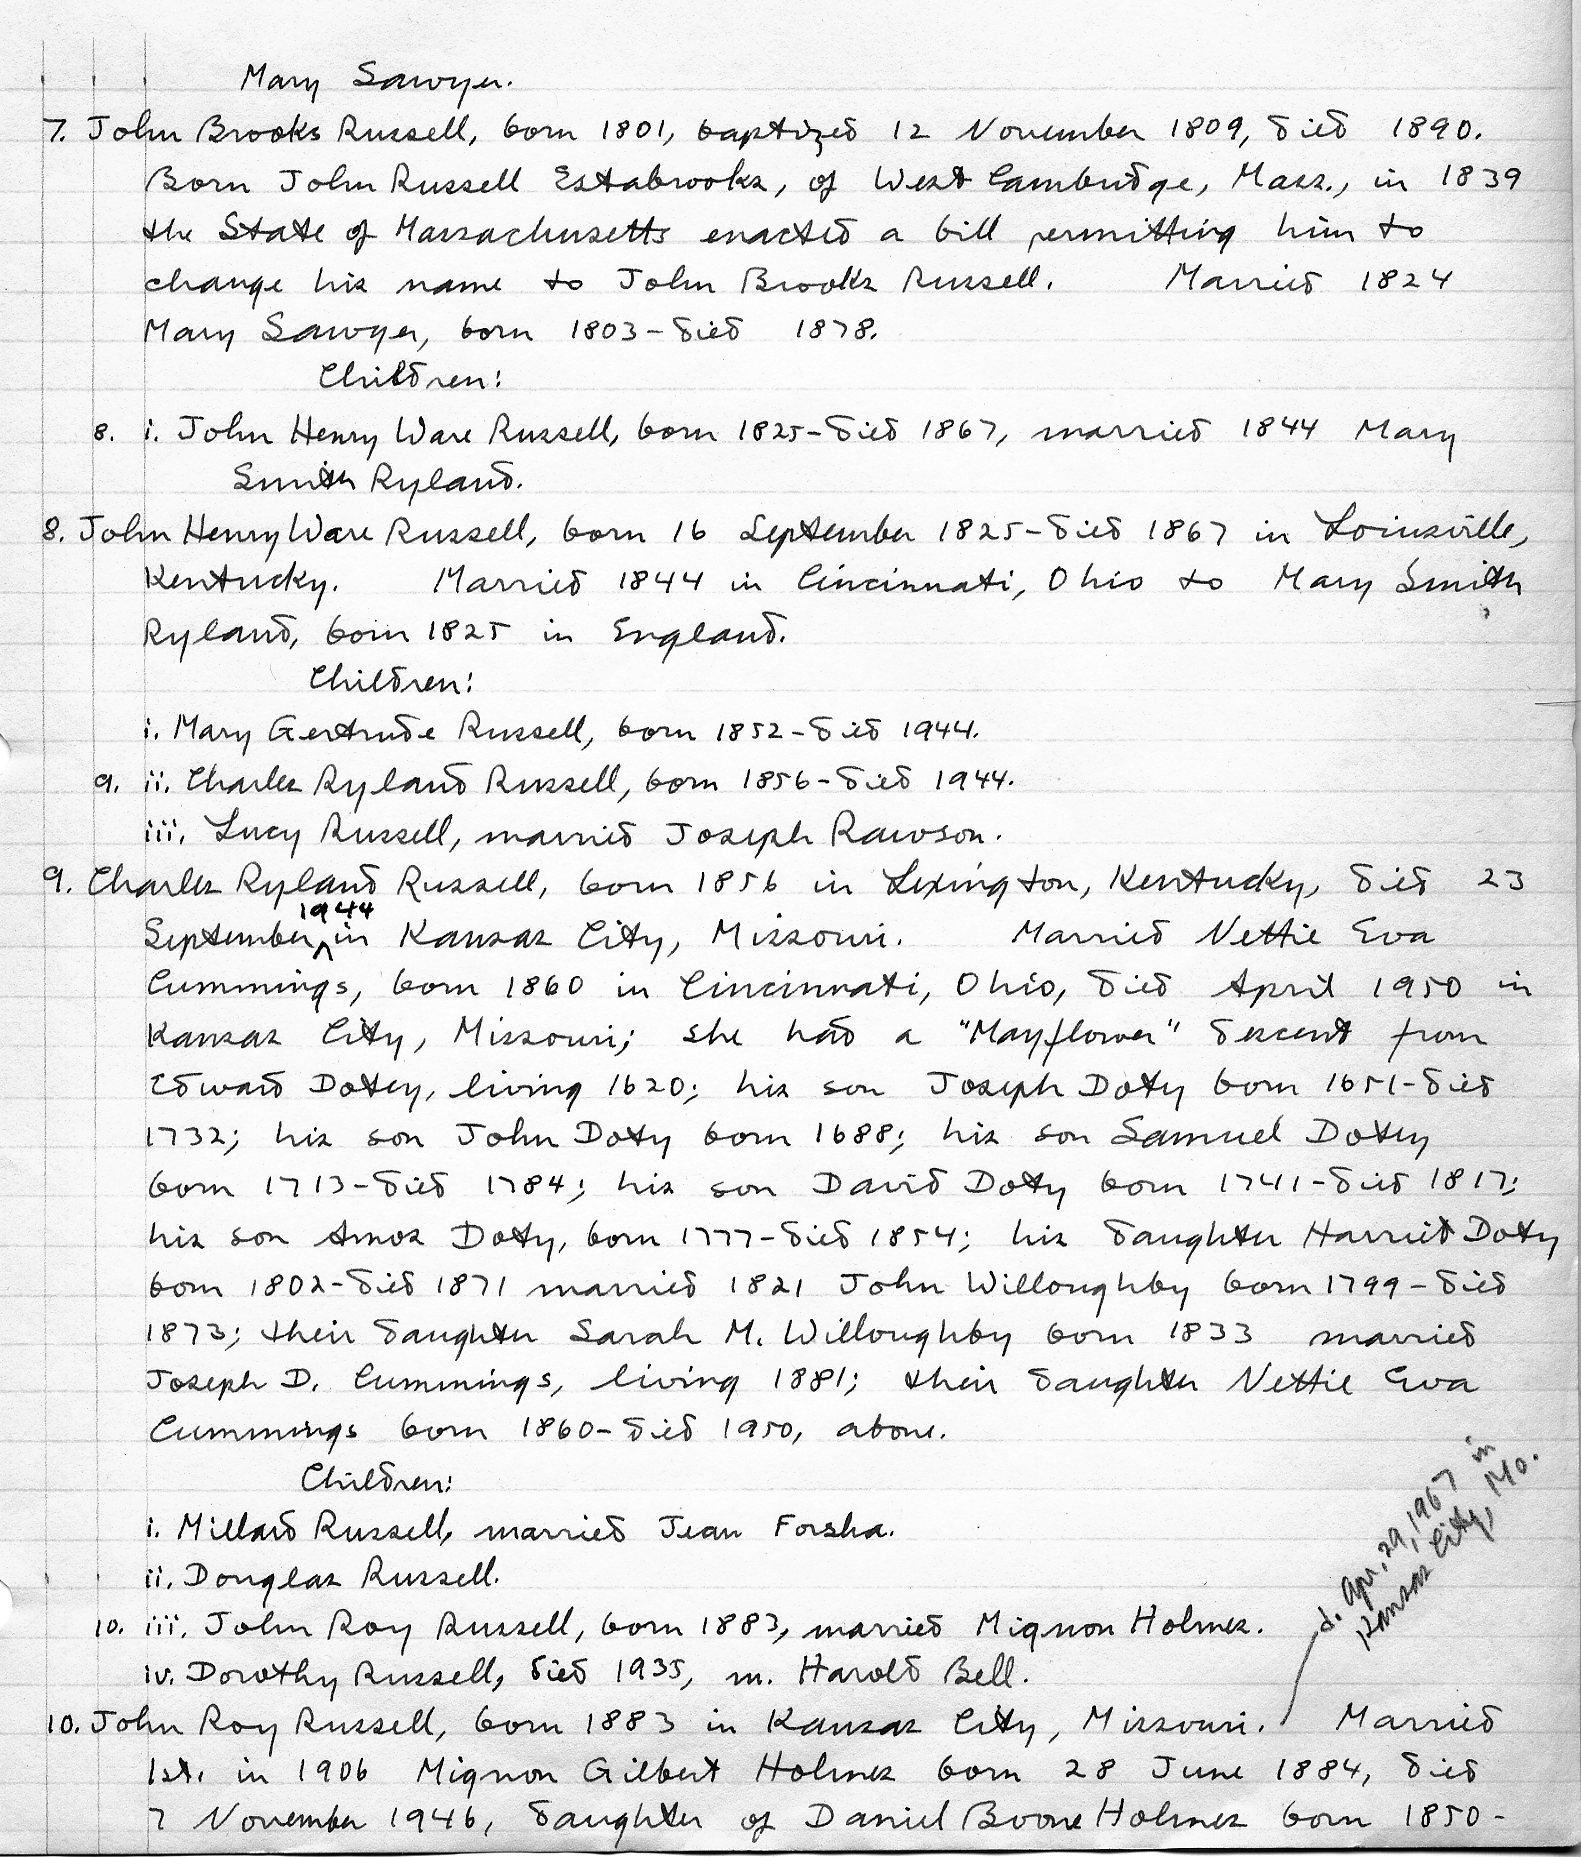 Mary Sawyer.
7. John Brooks Russell, born 1801, baptized 12 November 1809, died 1890.
Born John Russell Estabrooks, of West Cambridge, Mass., in 1839
the State of Massachusetts enacted a bill permitting him to
change his name to John Brooks Russell. Married 1824
Mary Sawyer, born 1803-died 1878.
Children:
8. i. John Henry Ware Russell, born 1825-died 1867, married 1844 Mary
Smith Ryland.
8. John Henry Ware Russell, born 16 September 1825-died 1867 in Louisville,
Kentucky. Married 1844 in Cincinnati, Ohio to Mary Smith
Ryland, born 1825 in England.
Children:
i. Mary Gertrude Russell, born 1852-died 1944.
9. ii. Charles Ryland Russell, born 1856-died 1944.
iii. Lucy Russell, married Joseph Rawson.
9. Charles Ryland Russell, born 1856 in Lexington, Kentucky, died 23
September, 1944 in Kansas City, Missouri. Married Nettie Eva
Cummings, born 1860 in Cincinnati, Ohio, died April 1950 in
Kansas City, Missouri; she had a "Mayflower" descent from
Edward Dotey, living 1620; his son Joseph Doty born 1651-died
1732; his son John Doty born 1688; his son Samuel Dotey
born 1713-died 1784; his son David Doty born 1741-died 1817;
his son Amos Doty, born 1777-died 1854; his daughter Harriet Doty
born 1802-died 1871 married 1821 John Willoughby born 1799-died
1873; their daughter Sarah M. Willoughby born 1833 married
Joseph D. Cummings, living 1881; their daughter Nettie Eva
Cummings born 1860-died 1950, above.
Children:
i. Millard Russell, married Jean Forsha.
ii. Douglas Russell.
10. iii. John Roy Russell, born 1883, married Mignon Holmes.
iv. Dorothy Russell, died 1935, m. Harold Bell.
d. Apr. 29, 1967 in
Kansas City, Mo.
10. John Roy Russell, born 1883 in Kansas City, Missouri. Married
1st. in 1906 Mignon Gilbert Holmes born 28 June 1884, died
7 November 1946, daughter of Daniel Boone Holmes born 1850-